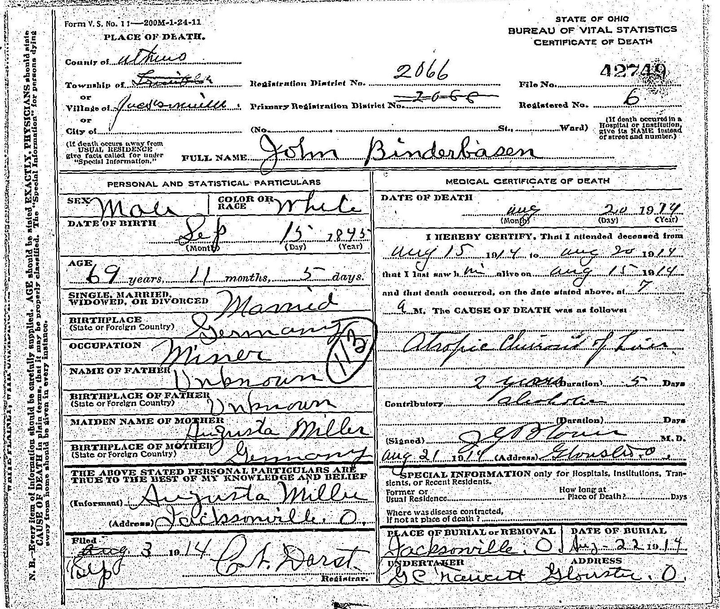 Form V. S. No. 11—200M-1-24-11
PLACE OF DEATH.
County of Athens
Township of Trimble
or
Village of Jacksonville
or
City of
(If death occurs away from USUAL RESIDENCE give facts called for under "Special Information")
STATE OF OHIO
BUREAU OF VITAL STATISTICS
CERTIFICATE OF DEATH
Registration District No. 2066
File No. 42749
Primary Registration District No. 2066
Registered No. 6
(No. St., Ward)
(If death occurred in a Hospital or institution, give its NAME instead of street and number.)
FULL NAME John Binderbasen
PERSONAL AND STATISTICAL PARTICULARS
SEX Male
COLOR OR RACE White
DATE OF BIRTH Sep 15 1845
(Month) (Day) (Year)
AGE
69 years, 11 months, 5 days.
SINGLE, MARRIED, WIDOWED, OR DIVORCED Married
BIRTHPLACE
(State or Foreign Country) Germany
OCCUPATION Miner
113
NAME OF FATHER Unknown
BIRTHPLACE OF FATHER
(State or Foreign Country) Unknown
MAIDEN NAME OF MOTHER Augusta Miller
BIRTHPLACE OF MOTHER
(State or Foreign Country) Germany
THE ABOVE STATED PERSONAL PARTICULARS ARE
TRUE TO THE BEST OF MY KNOWLEDGE AND BELIEF
(Informant) Augusta Miller
(Address) Jacksonville. O.
Filed
Aug 3 1914
Sep
C. A. Dorst
Registrar.
MEDICAL CERTIFICATE OF DEATH
DATE OF DEATH
Aug 20 1914
(Month) (Day) (Year)
I HEREBY CERTIFY, That I attended deceased from
Aug 15 1914 to Aug 20 1914
that I last saw him alive on Aug 15 1914
and that death occurred, on the date stated above, at 7
a M. The CAUSE OF DEATH was as follows:
Atropic Cirrosis of Liver
2 years (Duration) 5 Days
Contributory Alcohol
(Duration) Days
(Signed) M. D.
Aug 21 1914 (Address) Glouster O
SPECIAL INFORMATION only for Hospitals, Institutions, Transients, or Recent Residents.
Former or
Usual Residence
How long at
Place of Death? Days
Where was disease contracted,
if not at place of death?
PLACE OF BURIAL OR REMOVAL
Jacksonville. O.
DATE OF BURIAL
Aug - 22 1914
UNDERTAKER
ADDRESS
Glouster. O.
N. B.—Every item of information should be carefully supplied. AGE should be stated EXACTLY. PHYSICIANS should state
CAUSE OF DEATH in plain terms, that it may be properly classified. The "Special Information" for persons dying
away from home should be given in every instance.